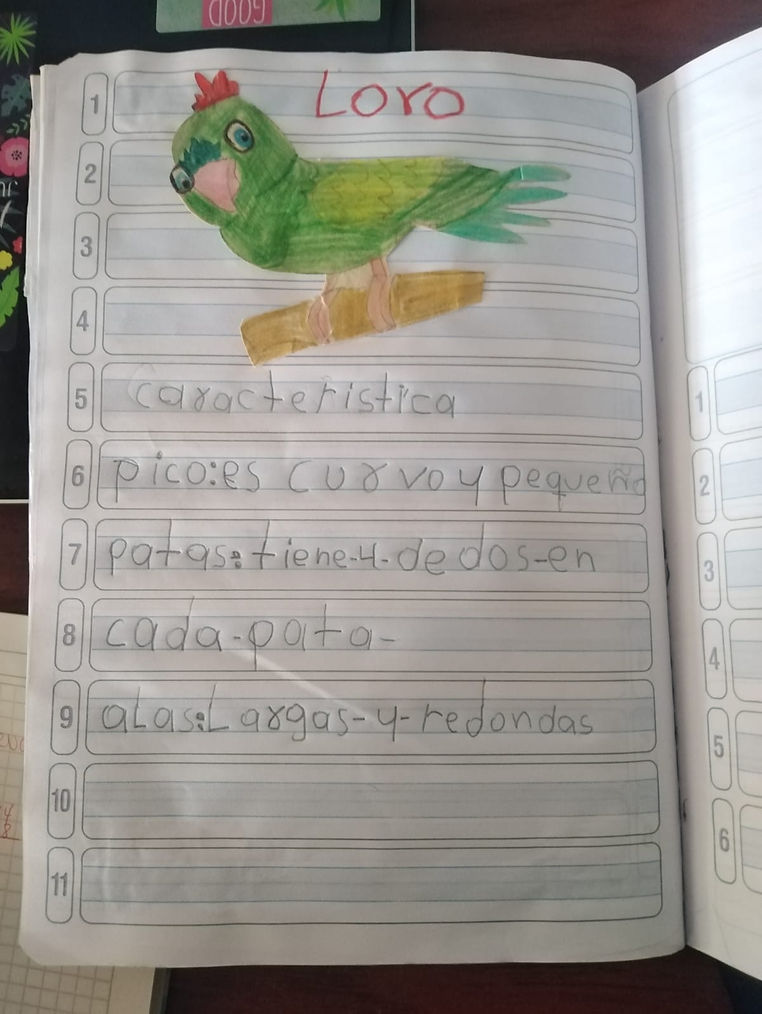 GOOD
1 Loro
2
3
4
5 caracteristica
6 pico:es curvo y pequeño
7 patas:tiene-4-dedos-en
8 cada-pata-
9 aLas:Largas-y-redondas
10
11
1
2
3
4
5
6